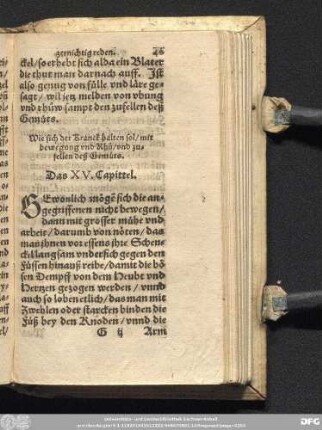 gemüchtig reden. 26
ckel/so erhebt sich alda ein Blater
die thut man darnach auff. Ist
also genug von fülle vnd läre ge-
sagt/ wil jetz melden von vbung
vnd rhůw sampt den zufellen deß
Gemüts.
Wie sich der Kranck halten sol/mit
bewegung vnd Rhů/vnd zu-
fellen deß Gemüts.
Das XV. Capittel.
GEwonlich mögē sich die an-
gegriffenen nicht bewegen/
dann mit grosser mühe vnd
arbeit/darumb von nöten/das
man jhnen vor essens jhre Schen-
ckel langsam vndersich gegen den
Füssen hinauß reibe/damit die bö
sen Dempff von dem Heubt vnd
Hertzen gezogen werden/vnnd
auch so loben etlich/das man mit
Zwehlen oder starcken binden die
Füß bey den Knoden/vnnd die
G ij Arm